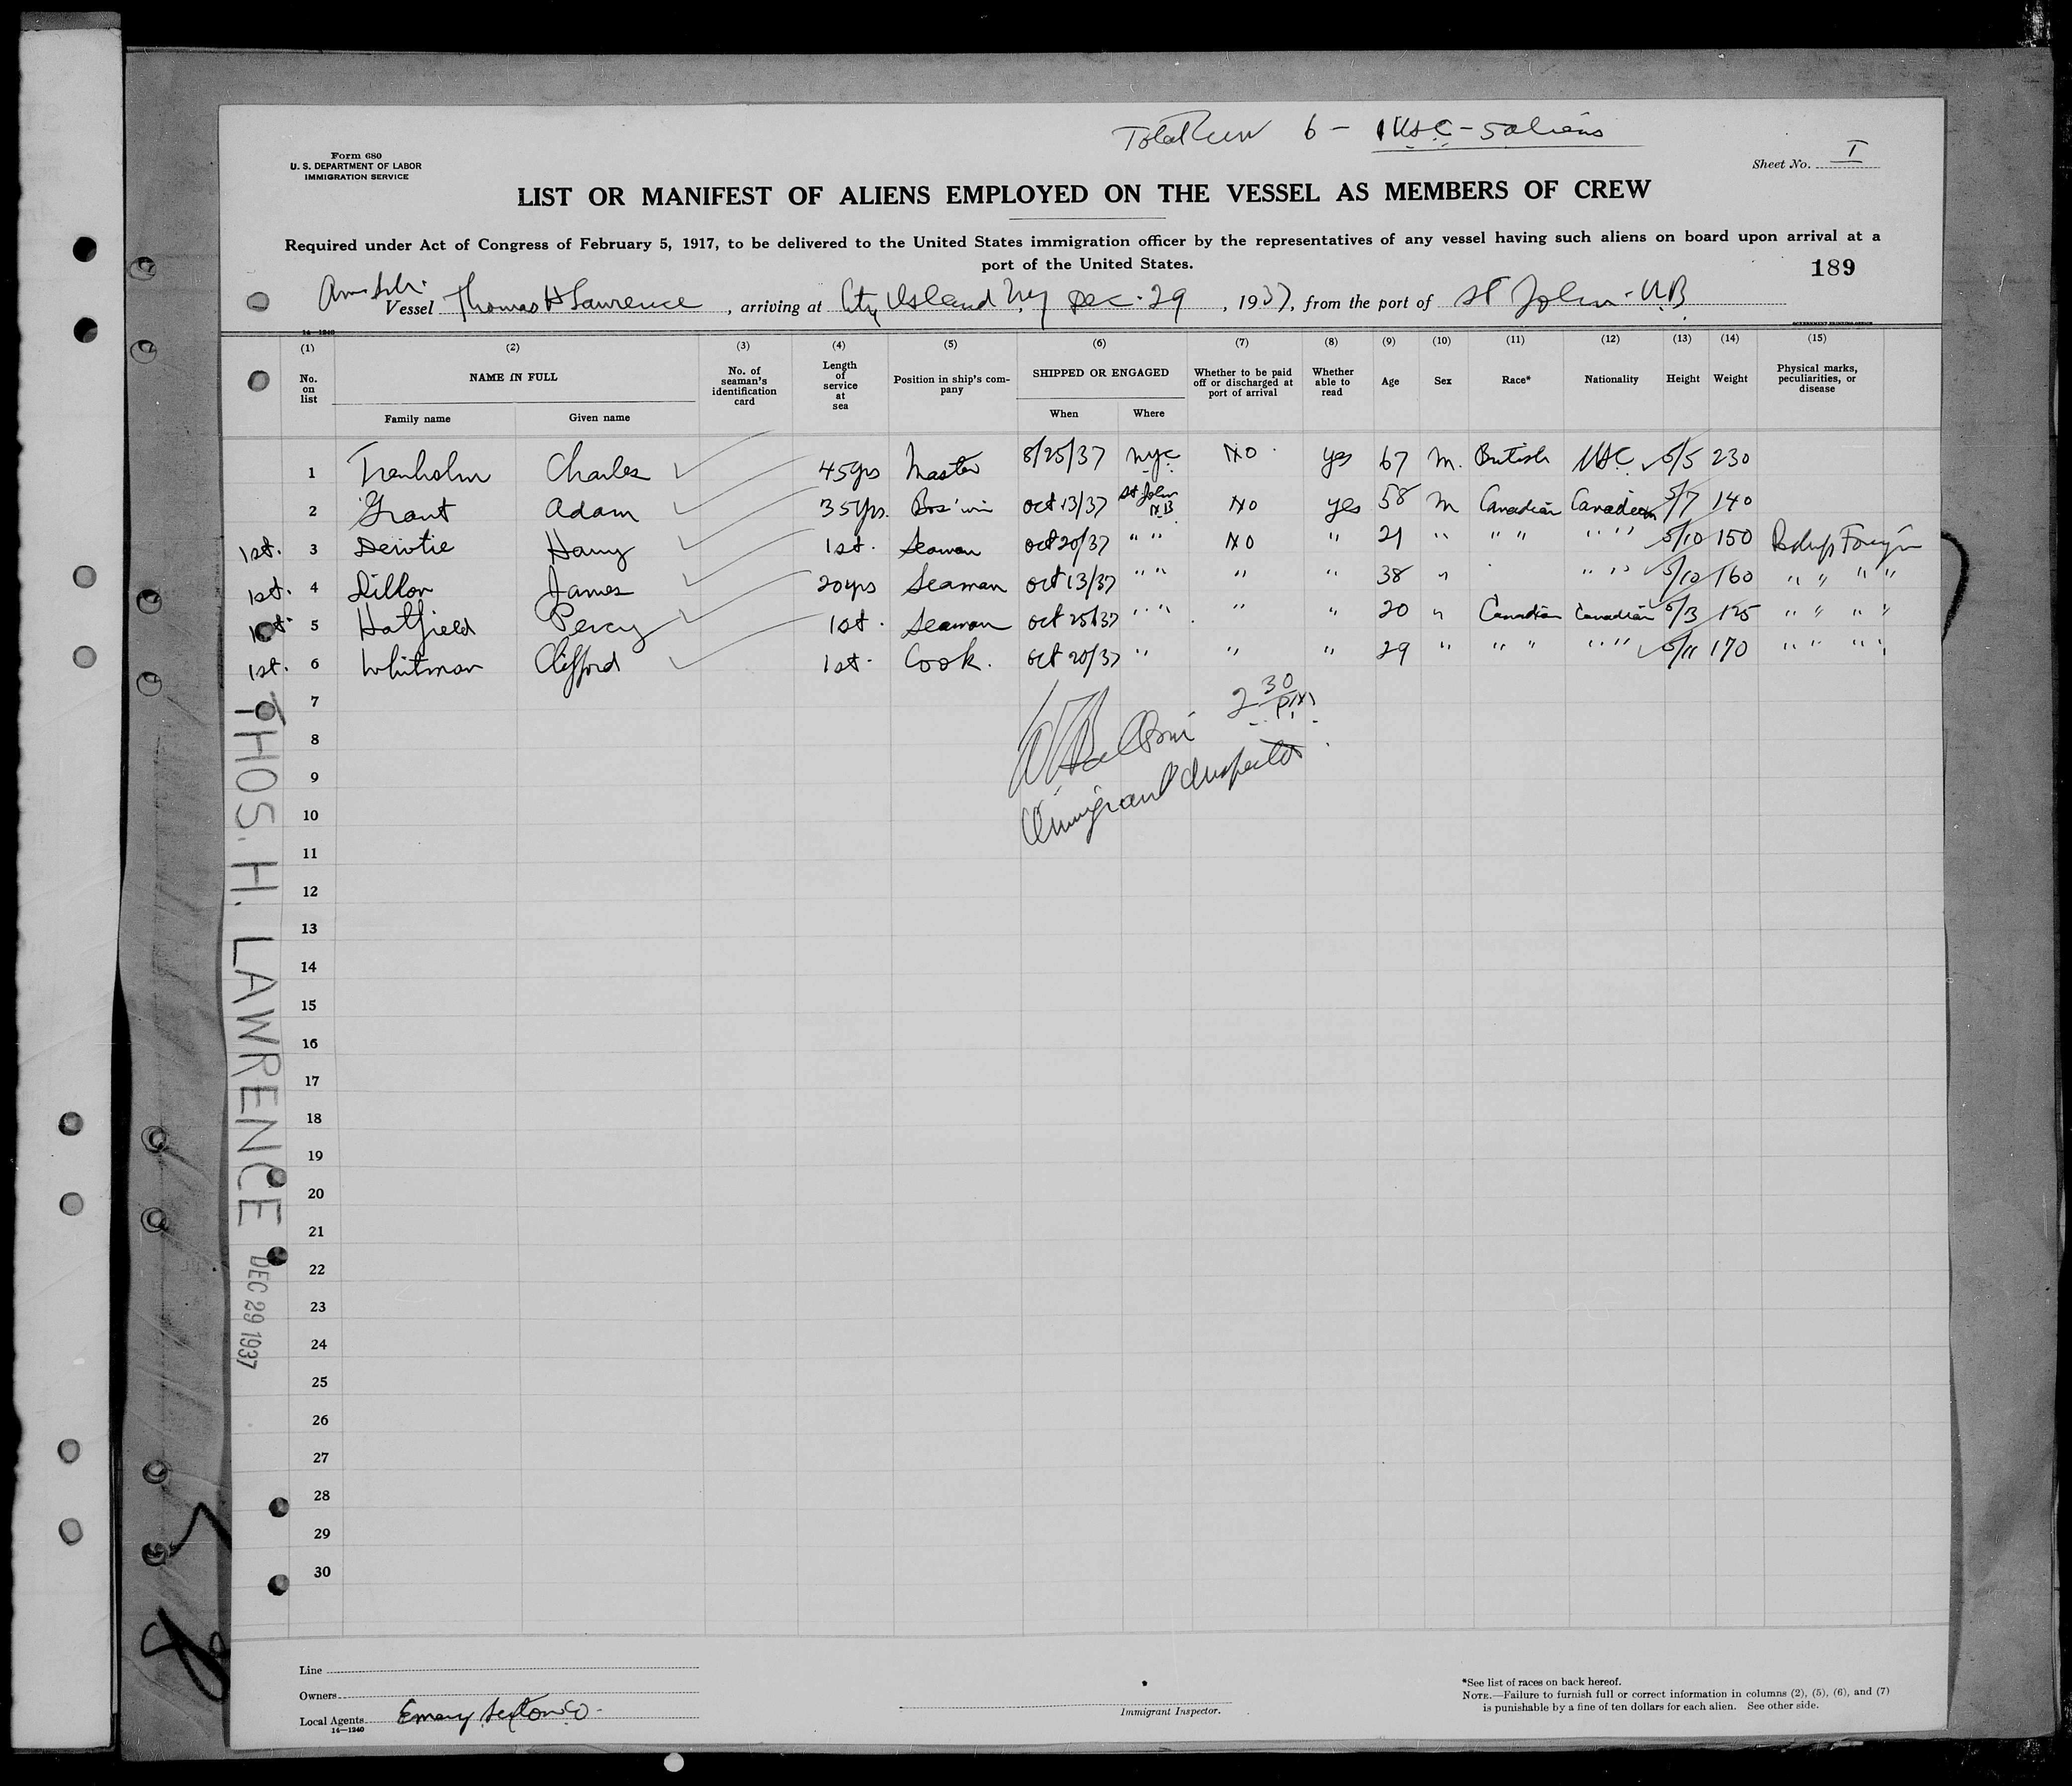 Total Crew 6 - 1 USC - 5 aliens
Form 680
U. S. DEPARTMENT OF LABOR
IMMIGRATION SERVICE
Sheet No. I
LIST OR MANIFEST OF ALIENS EMPLOYED ON THE VESSEL AS MEMBERS OF CREW
Required under Act of Congress of February 5, 1917, to be delivered to the United States immigration officer by the representatives of any vessel having such aliens on board upon arrival at a
port of the United States.
189
Am Sch.
Vessel Thomas H Lawrence, arriving at City Island NY Dec. 29, 1937, from the port of St John. N.B.
14—1240
GOVERNMENT PRINTING OFFICE
(1) (2) (3) (4) (5) (6) (7) (8) (9) (10) (11) (12) (13) (14) (15)
No. on list
NAME IN FULL
Family name
Given name
No. of seaman's identification card
Length of service at sea
Position in ship's company
SHIPPED OR ENGAGED
When
Where
Whether to be paid off or discharged at port of arrival
Whether able to read
Age
Sex
Race*
Nationality
Height
Weight
Physical marks, peculiarities, or disease
1 Trenholm Charles 45yrs Master 8/25/37 nyc NO. yes 67 M. British USC 5/5 230
2 Grant Adam 35yrs. Bos'un Oct 13/37 St John N.B. NO yes 58 M Canadian Canadian 5/7 140
1st. 3 Harry 1st. Seaman Oct 20/37 " " NO " 21 " " " " " " 5/10 150 Foreign
1st. 4 Dillon James 20yrs Seaman Oct 13/37 " " " " 38 " " " " 5/10 160 " " " "
1st 5 Hatfield Percy 1st. Seaman Oct 25/37 " " " " 20 " Canadian Canadian 5/3 125 " " " "
1st. 6 Whitman Clifford 1st. Cook. Oct 20/37 " " " 29 " " " " " " 5/11 170 " " " "
7
8
9
10
11
12
13
14
15
16
17
18
19
20
21
22
23
24
25
26
27
28
29
30
2 30 PM
Immigrant Inspector
THOS. H. LAWRENCE
DEC 29 1937
Line
Owners
Local Agents Emery Sexton Co.
14—1240
Immigrant Inspector.
*See list of races on back hereof.
NOTE.—Failure to furnish full or correct information in columns (2), (5), (6), and (7)
is punishable by a fine of ten dollars for each alien. See other side.